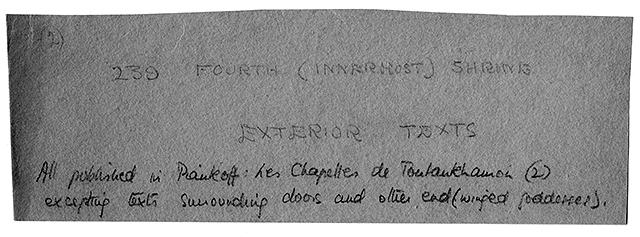 (2)
239 FOURTH (INNERMOST) SHRINE
EXTERIOR TEXTS
All published in Piankoff: Les Chapelles de Toutankhamon (2)
excepting texts surrounding doors and other end (winged goddesses).